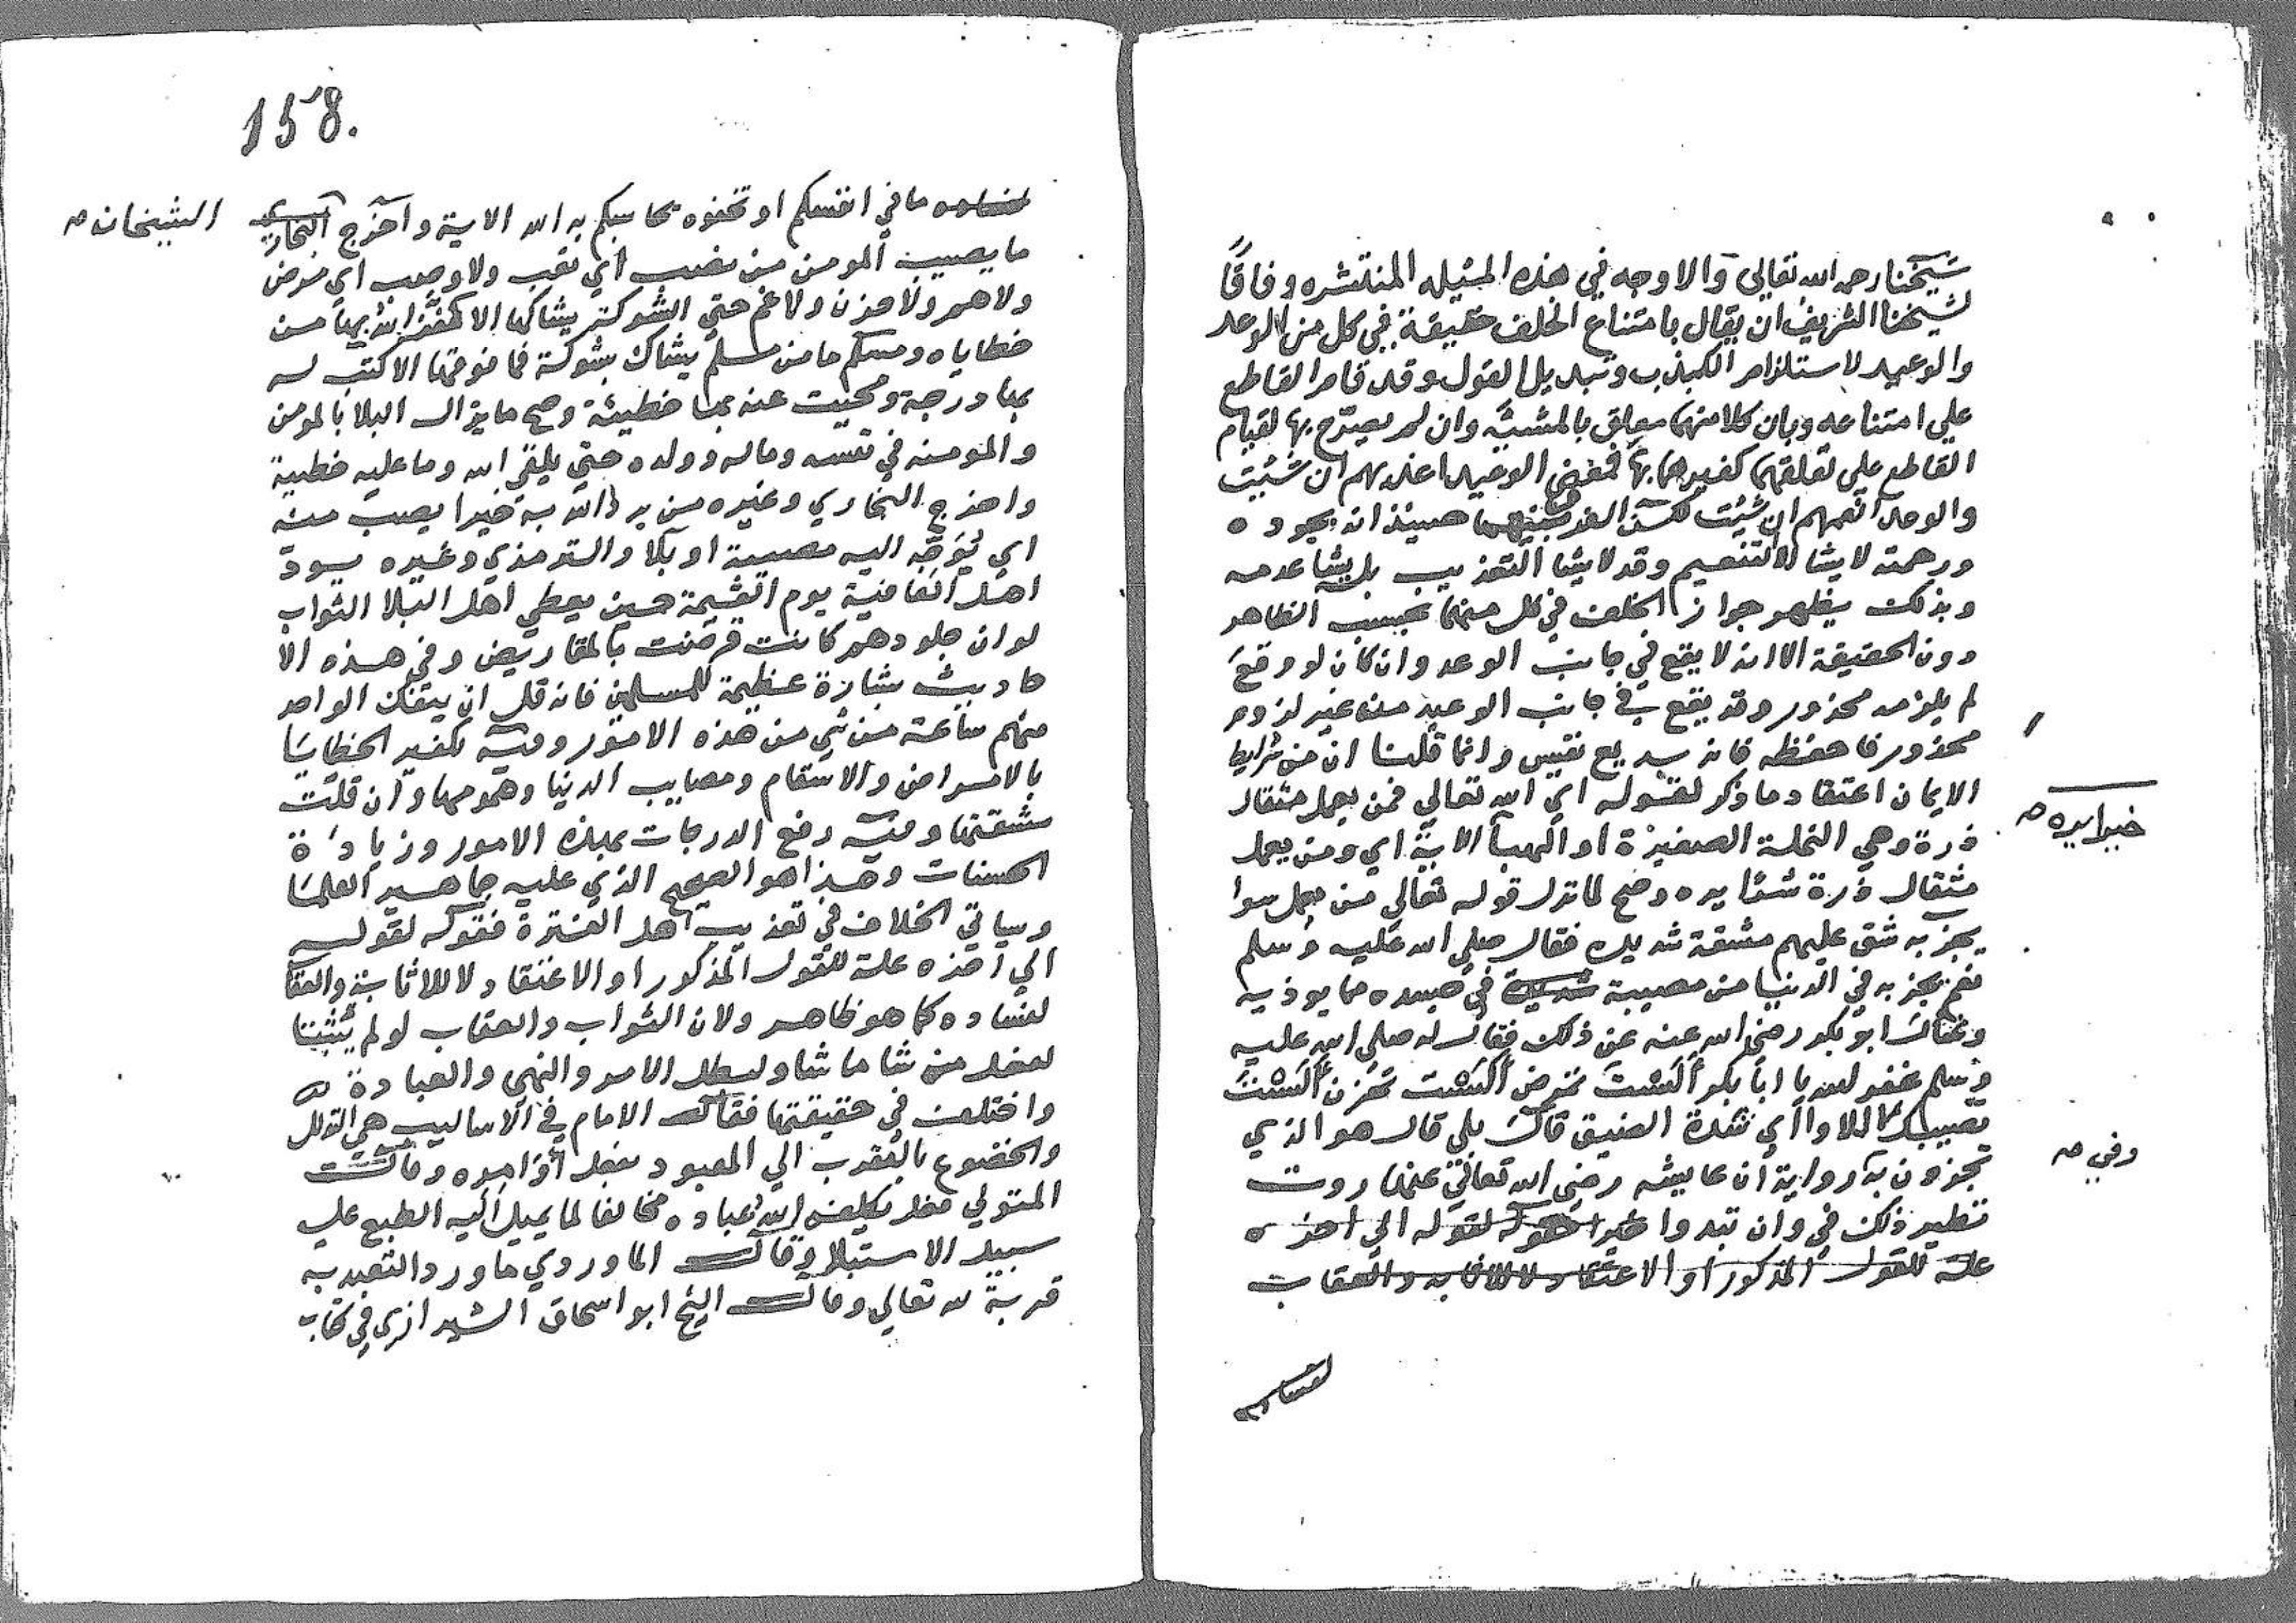 شيخنا رحمه الله تعالى والاوجه في هذه المسئلة المنتشره وفاقًا
لشيخنا الشريف ان يقال بامتناع الخلف حقيقة في كل من الوعد
والوعيد لاستلزام الكذب وتبديل القول وقد قام القاطع
علي امتناعه وبان كلا منهما معلق بالمشيّة وان لم يصرّح بها لقيام
القاطع علي تعلقهما كغيرهما بها فمعنى الوعيد اعذبهم ان شئت
والوعد انعمهم ان شئت لكن حينئذ انه بجوده
ورحمته لا يشا الا التنعيم وقد لا يشا التعذيب بل يشا عدمه
وبذلك يظهر جواز الخلف في كل منهما بحسب الظاهر
دون الحقيقة الا انه لا يقع في جانب الوعد وان كان لو وقع
لم يلزمه محذور وقد يقع في جانب الوعيد من غير لزوم
محذور فاحفظه فانه بديع نفيس وانما قلنا ان من شرايط
الايمان اعتقاد ما ذكر لقوله اي الله تعالي فمن يعمل مثقال
خيرا يره صح
ذرة وهي النملة الصغيرة او الهبا الاية اي ومن يعمل
مثقال ذرة شرًا يره وصح لما نزل قوله تعالي من يعمل سوا
يجز به شق عليهم مشقة شديده فقال صلى الله عليه وسلم
نعم يجز به في الدنيا من مصيبة في جسده مما يوذيه
وسال ابو بكر رضي الله عنه عن ذلك فقال له صلى الله عليه
وسلم غفر لله يا ابا بكر ألست تمرض ألست تحزن ألست
تصيبك اللاوا أي شدة الضيق قال بلى قال هو الذي
تجزون به رواية ان عايشه رضي الله تعالى عنها روت
وفي صح
نظير ذلك في وان تبدوا لقوله الي اخذه
علة للقول المذكور او الاعتقاد لا للاثابه والعقاب
لفساده
158.
ما في انفسكم او تخفوه يحاسبكم به الله الاية واخرج البخاري
الشيخان صح
ما يصيب المومن من نصب أي تعب ولا وصب اي مرض
ولا هم ولا حزن ولا غم حتى الشوكة يشاكها الا كفّر الله بها من
خطاياه ومسلم ما من مسلم يشاك بشوكة فما فوقها الا كتب له
بها درجة ومحيت عنه بها خطيئة وصح ما يزال البلا بالمومن
والمومنه في نفسه وماله وولده حتى يلقى الله وما عليه خطية
واخرج البخاري وغيره من يرد الله به خيرا يصب منه
اي يُوَجِّه اليه مصيبة او بلا والترمذي وغيره يودّ
اهل العافية يوم القيمة حين يعطي اهل البلا الثواب
لو ان جلودهم كانت قرضت بالمقاريض وفي هذه الا
حاديث بشارة عظيمة للمسلمين فانه قل ان ينفك الواحد
منهم ساعة من شي من هذه الامور وفيه تكفير الخطايا
بالامراض والاسقام ومصايب الدنيا وهمومها وان قلّت
مشقتها وفيه رفع الدرجات بهذه الامور وزيادة
الحسنات وهذا هو الصحيح الذي عليه جماهير العلما
وسياتي الخلاف في تعذيب اهل الفترة فقوله لقوله
الي أخذه علة للقول المذكور او الاعتقاد لا للاثابة والعقا
لفساده كما هو ظاهر ولان الثواب والعقاب لو لم يثبتا
لفعل من شا ما شا ولبطل الامر والنهي والعبادة له
واختلف في حقيقتها فقال الامام في الاساليب هي التذلل
والخضوع بالتقرب الي المعبود بفعل أوامره وقال
المتولي فعل يكلفه الله عباده مخالفا لما يميل اليه الطبع علي
سبيل الابتلا وقال الماوردي ما ورد التعبد به
قربة لله تعالي وقال الشيخ ابو اسحاق الشيرازي في كتاب